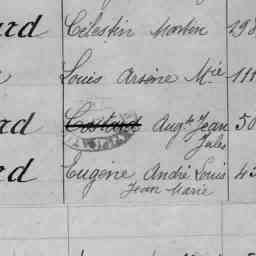 ard Célestin Marten 298
Louis Arsène Mie 111
ard Costard Augte Jean 50
Jules
ard Eugène André Louis 45
Jean Marie